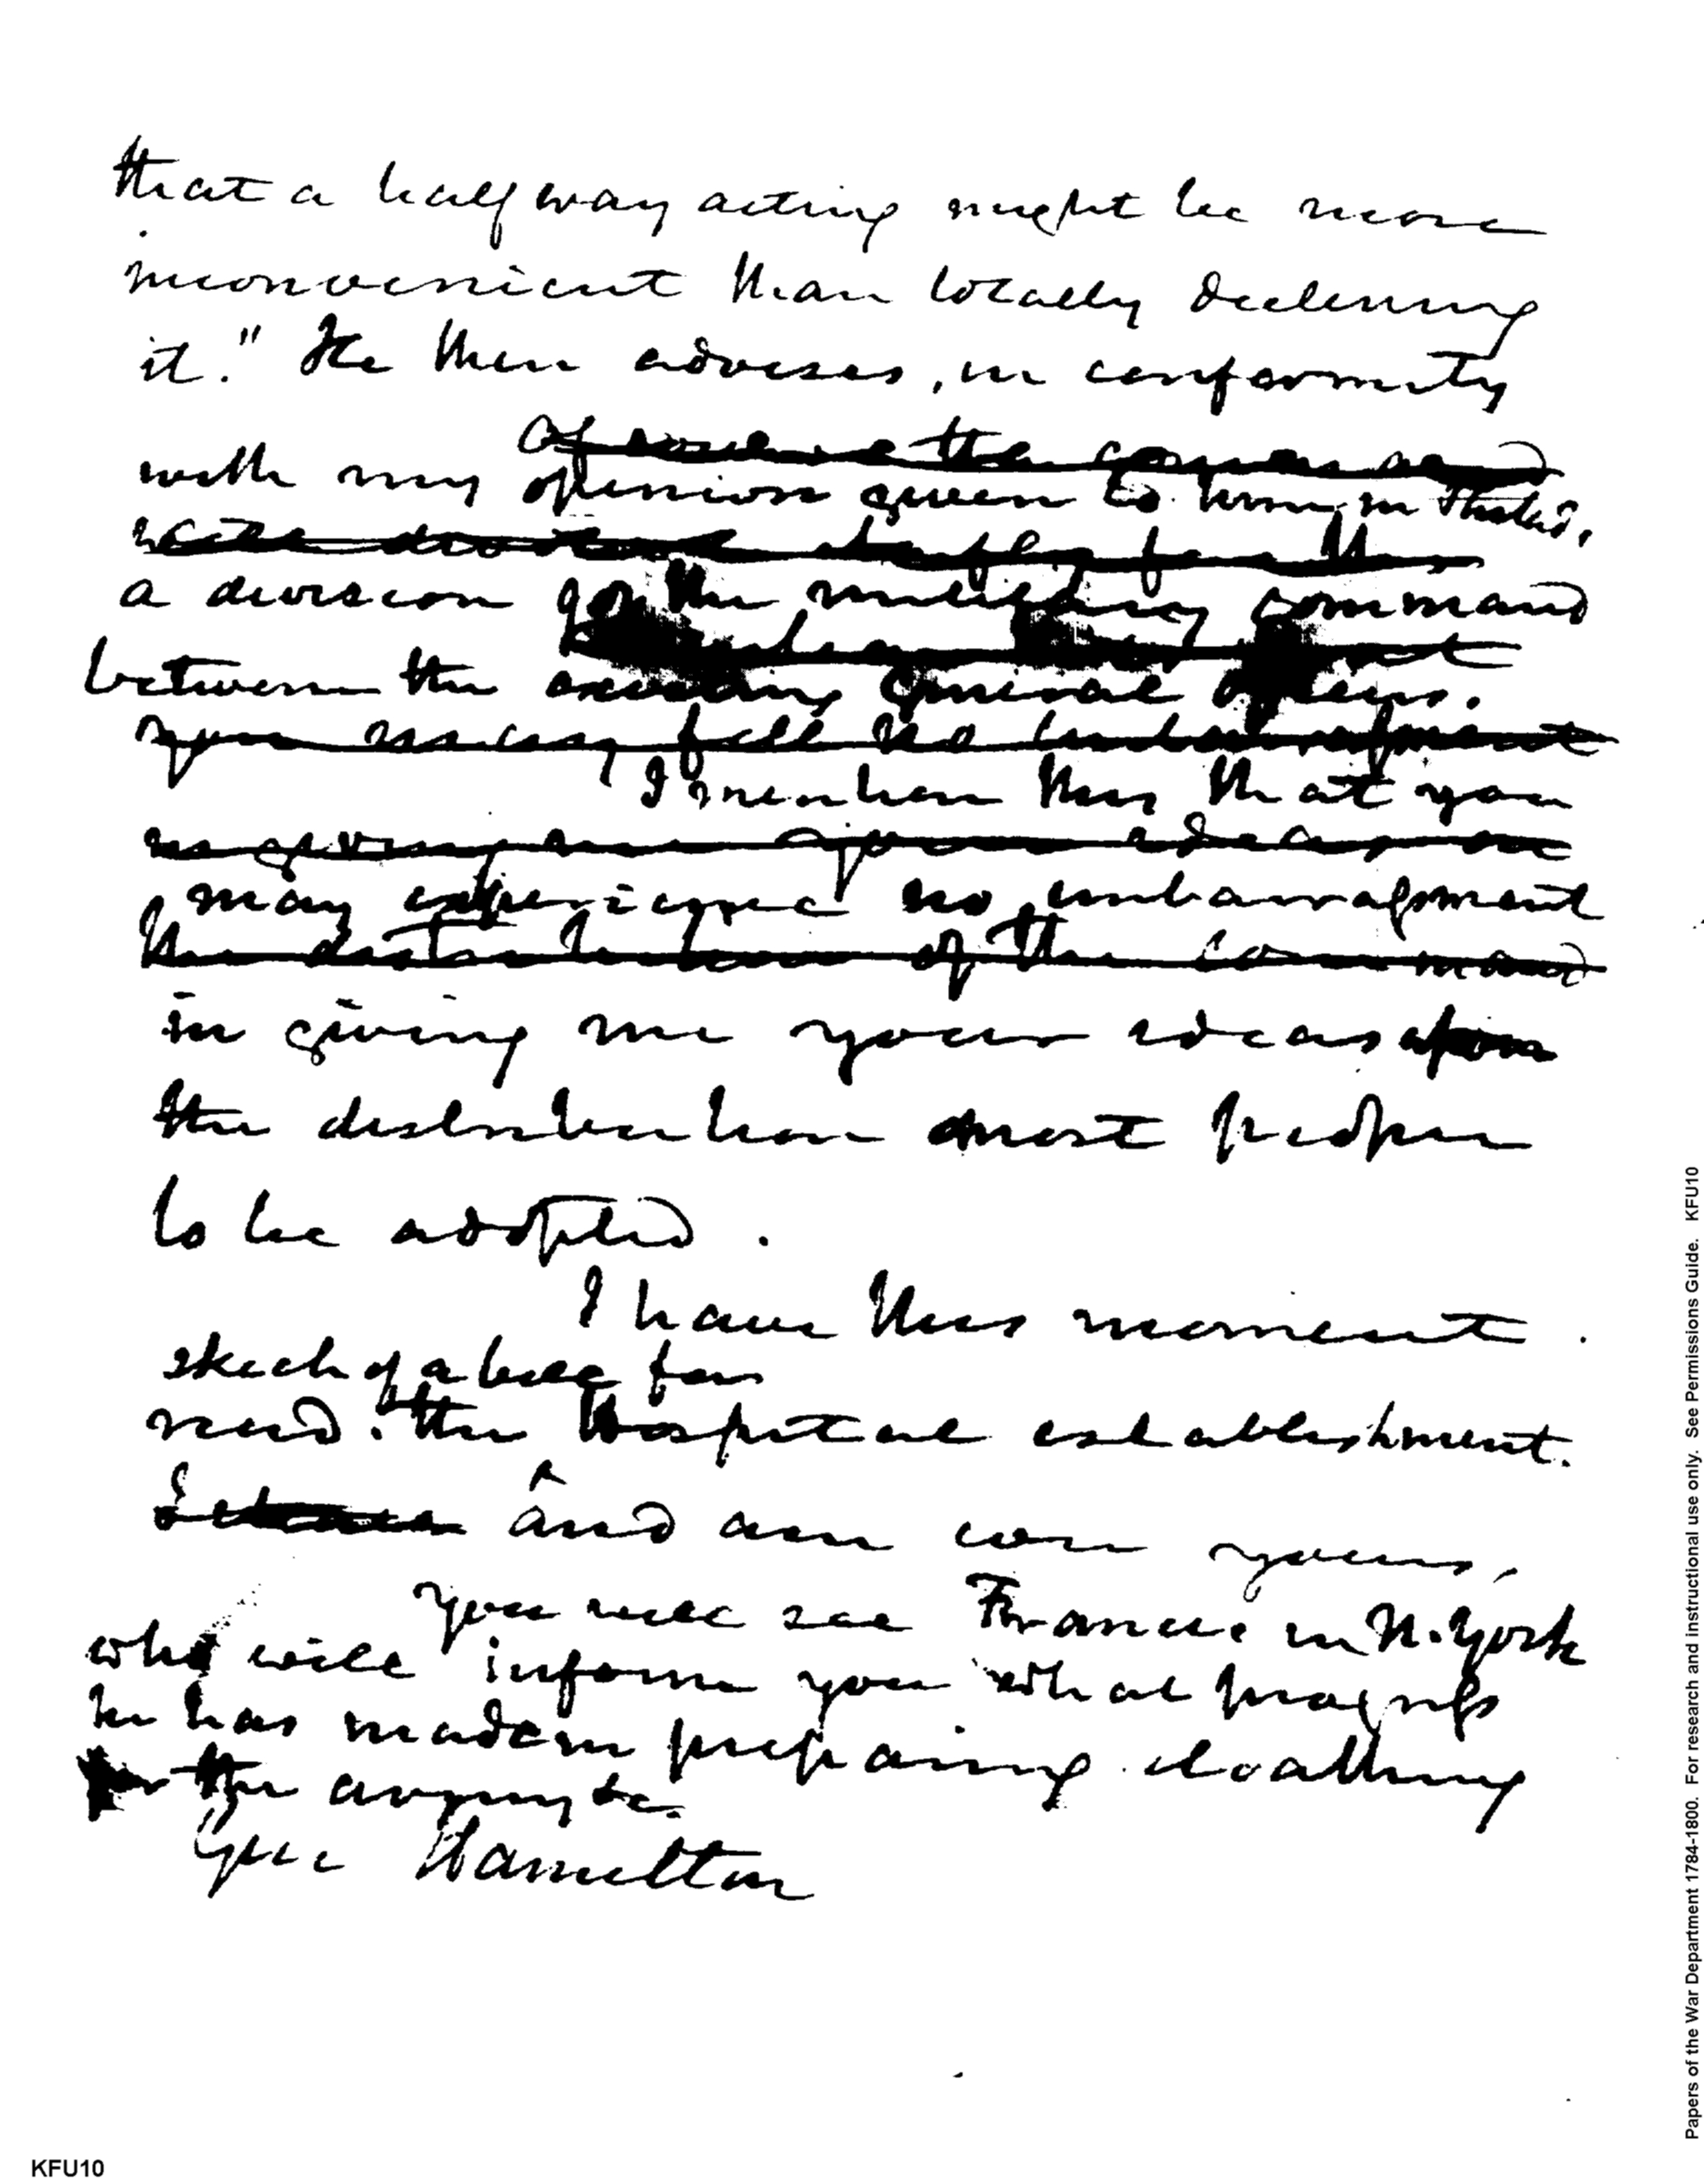 that a half way acting might be more
inconvenient than totally declining
it." He then advises, in conformity
with my opinion given to him,
a division of the military command
between the existing general officers.
you may feel no embarrassment
I mention this that you
in giving me your ideas on
may experience no embarrassment
the distribution of the command
in giving me your ideas upon
the distribution most proper
to be adopted.
I have this moment
sketch of a bill for
recd. the Hospital establishment.
and am ever yours,
You will see Francis in N. York
who will inform you what progress
he has made in preparing cloathing
for the army &c.
Genl Hamilton
Papers of the War Department 1784-1800. For research and instructional use only. See Permissions Guide. KFU10
KFU10